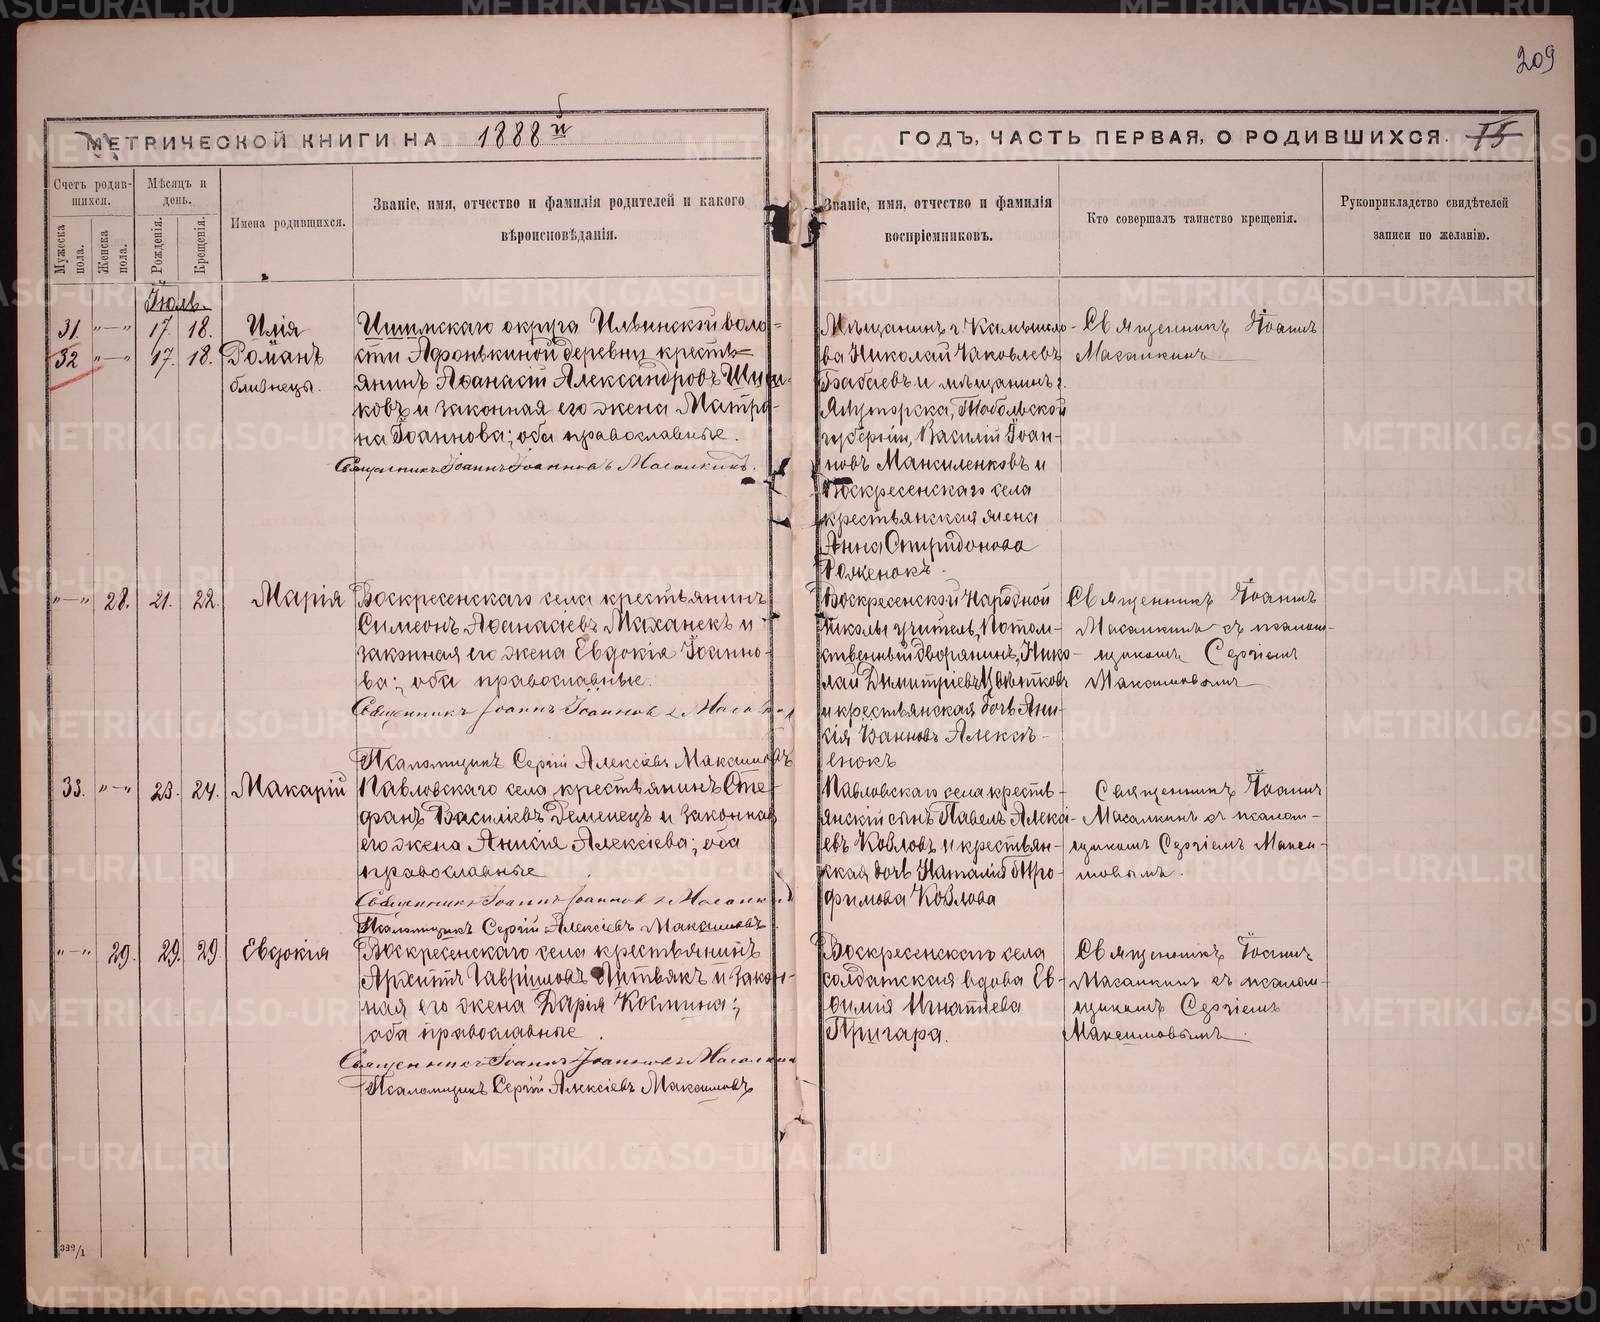 209
МЕТРИЧЕСКОЙ КНИГИ НА 1888й
ГОДЪ, ЧАСТЬ ПЕРВАЯ, О РОДИВШИХСЯ.
Счетъ родившихся.
Мужеска пола.
Женска пола.
Мѣсяцъ и день.
Рожденія.
Крещенія.
Имена родившихся.
Званіе, имя, отчество и фамилія родителей и какого
вѣроисповѣданія.
Званіе, имя, отчество и фамилія
воспріемниковъ.
Кто совершалъ таинство крещенія.
Рукоприкладство свидѣтелей
записи по желанію.
Іюль.
31. "—" 17. 18. Илія
32 "—" 17. 18. Романъ
близнецы.
Ишимскаго округа Ильинской воло-
сти Афонькиной деревни кресть-
янинъ Аѳанасій Александровъ
ковъ и законная его жена Матро-
на Іоаннова; оба православные.
Священникъ Іоаннъ Іоанновъ Масалкинъ.
Мѣщанинъ г. Камышло-
ва Николай Яковлевъ
Бабаевъ и мѣщанинъ г.
Ялуторска, Тобольской
губерніи, Василій Іоан-
новъ Мансиленковъ и
Воскресенскаго села
крестьянская жена
Анна Спиридонова
Священникъ Іоаннъ
Масалкинъ
"—" 28. 21. 22. Марія
Воскресенскаго села крестьянинъ
Симеонъ Аѳанасіевъ Маханекъ и
законная его жена Евдокія Іоанно-
ва; оба православные.
Священникъ Іоаннъ Іоанновъ Масалкин
Псаломщикъ Сергій Алексіевъ Максимовъ
Воскресенской Народной
школы учитель, Потом-
ственный дворянинъ, Нико-
лай Димитріевъ Цвѣтковъ
и крестьянская дочь Ани-
сія Іоаннова Алексѣ-
енокъ
Священникъ Іоаннъ
Масалкинъ съ псалом-
щикомъ Сергіемъ
Максимовымъ
33. "—" 23. 24. Макарій
Павловскаго села крестьянинъ Сте-
фанъ Василіевъ Деменецъ и законная
его жена Анисія Алексіева; оба
православные
Священникъ Іоаннъ Іоанновъ Масалкинъ
Псаломщикъ Сергій Алексіевъ Максимовъ
Павловскаго села кресть-
янскій сынъ Павелъ Алексі-
евъ Козловъ и крестьян-
ская дочь Наталія Тро-
фимова Козлова
Священникъ Іоаннъ
Масалкинъ съ псалом-
щикомъ Сергіемъ Макси-
мовымъ.
"—" 29. 29. 29. Евдокія
Воскресенскаго села крестьянинъ
Архиппъ Гавріиловъ Литвякъ и закон-
ная его жена Дарія Космина;
оба православные
Священникъ Іоаннъ Іоанновъ Масалкин
Псаломщикъ Сергій Алексіевъ Максимовъ
Воскресенскаго села
солдатская вдова Ев-
фимія Игнатіева
Пригара.
Священникъ Іоаннъ
Масалкинъ съ псалом-
щикомъ Сергіемъ
Максимовымъ
399/1
METRIKI.GASO-URAL.RU